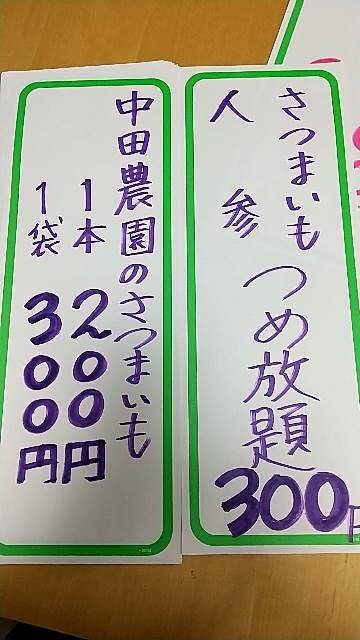 さつまいも
人参
つめ放題
300円
中田農園のさつまいも
1本 200円
1袋 300円